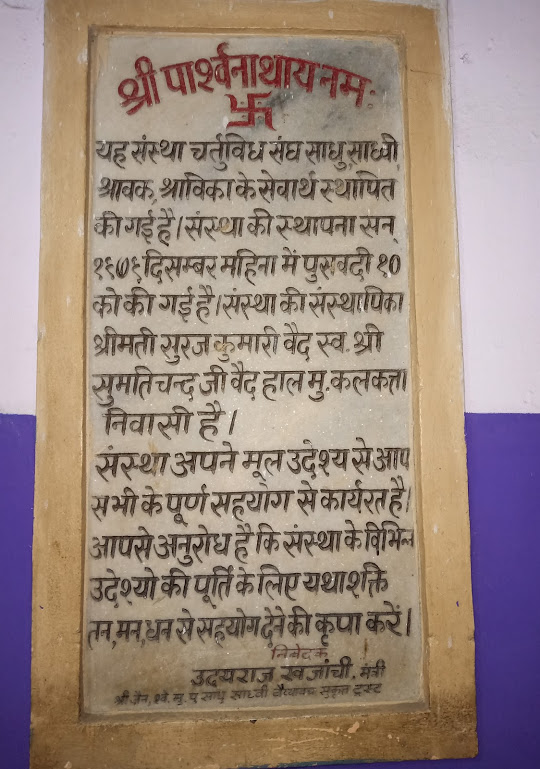 श्री पार्श्वनाथाय नमः
卐
यह संस्था चर्तुविध संघ साधु, साध्वी,
श्रावक, श्राविका के सेवार्थ स्थापित
की गई है। संस्था की स्थापना सन्
१९७९ दिसम्बर महिना में पुसवदी १०
को की गई है। संस्था की संस्थापिका
श्रीमती सुरज कुमारी वैद स्व. श्री
सुमतिचन्द जी वैद हाल मु. कलकत्ता
निवासी है।
संस्था अपने मूल उदेश्य से आप
सभी के पूर्ण सहयाग से कार्यरत है।
आपसे अनुरोध है कि संस्था के विभिन्न
उदेश्यो की पूर्ति के लिए यथाशक्ति
तन, मन, धन से सहयोग देने की कृपा करें।
निवेदक
उदयराज खजांची, मंत्री
श्री जैन, श्वे. मु. पु साधु साध्वी वैय्यावच्च सुकृत ट्रस्ट